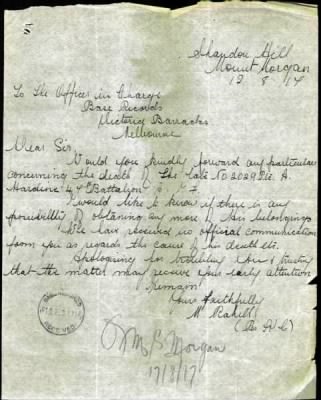 Shandon Hill
Mount Morgan
13 . 8 . 17
To The Officer in Charge
Base Records
Victoria Barracks
Melbourne
Dear Sir,
Would you kindly forward any particulars
concerning the death of the late No 2029 Pte. A.
Hardine 49 Battalion A. I. F.
I would like to know if there is any
possibility of obtaining any more of his belongings
We have received no official communication
from you as regards the cause of his death etc.
Apologising for troubling you & trusting
that the matter may receive your early attention
I remain
Yours faithfully
RECEIVED
Morgan
17/8/17